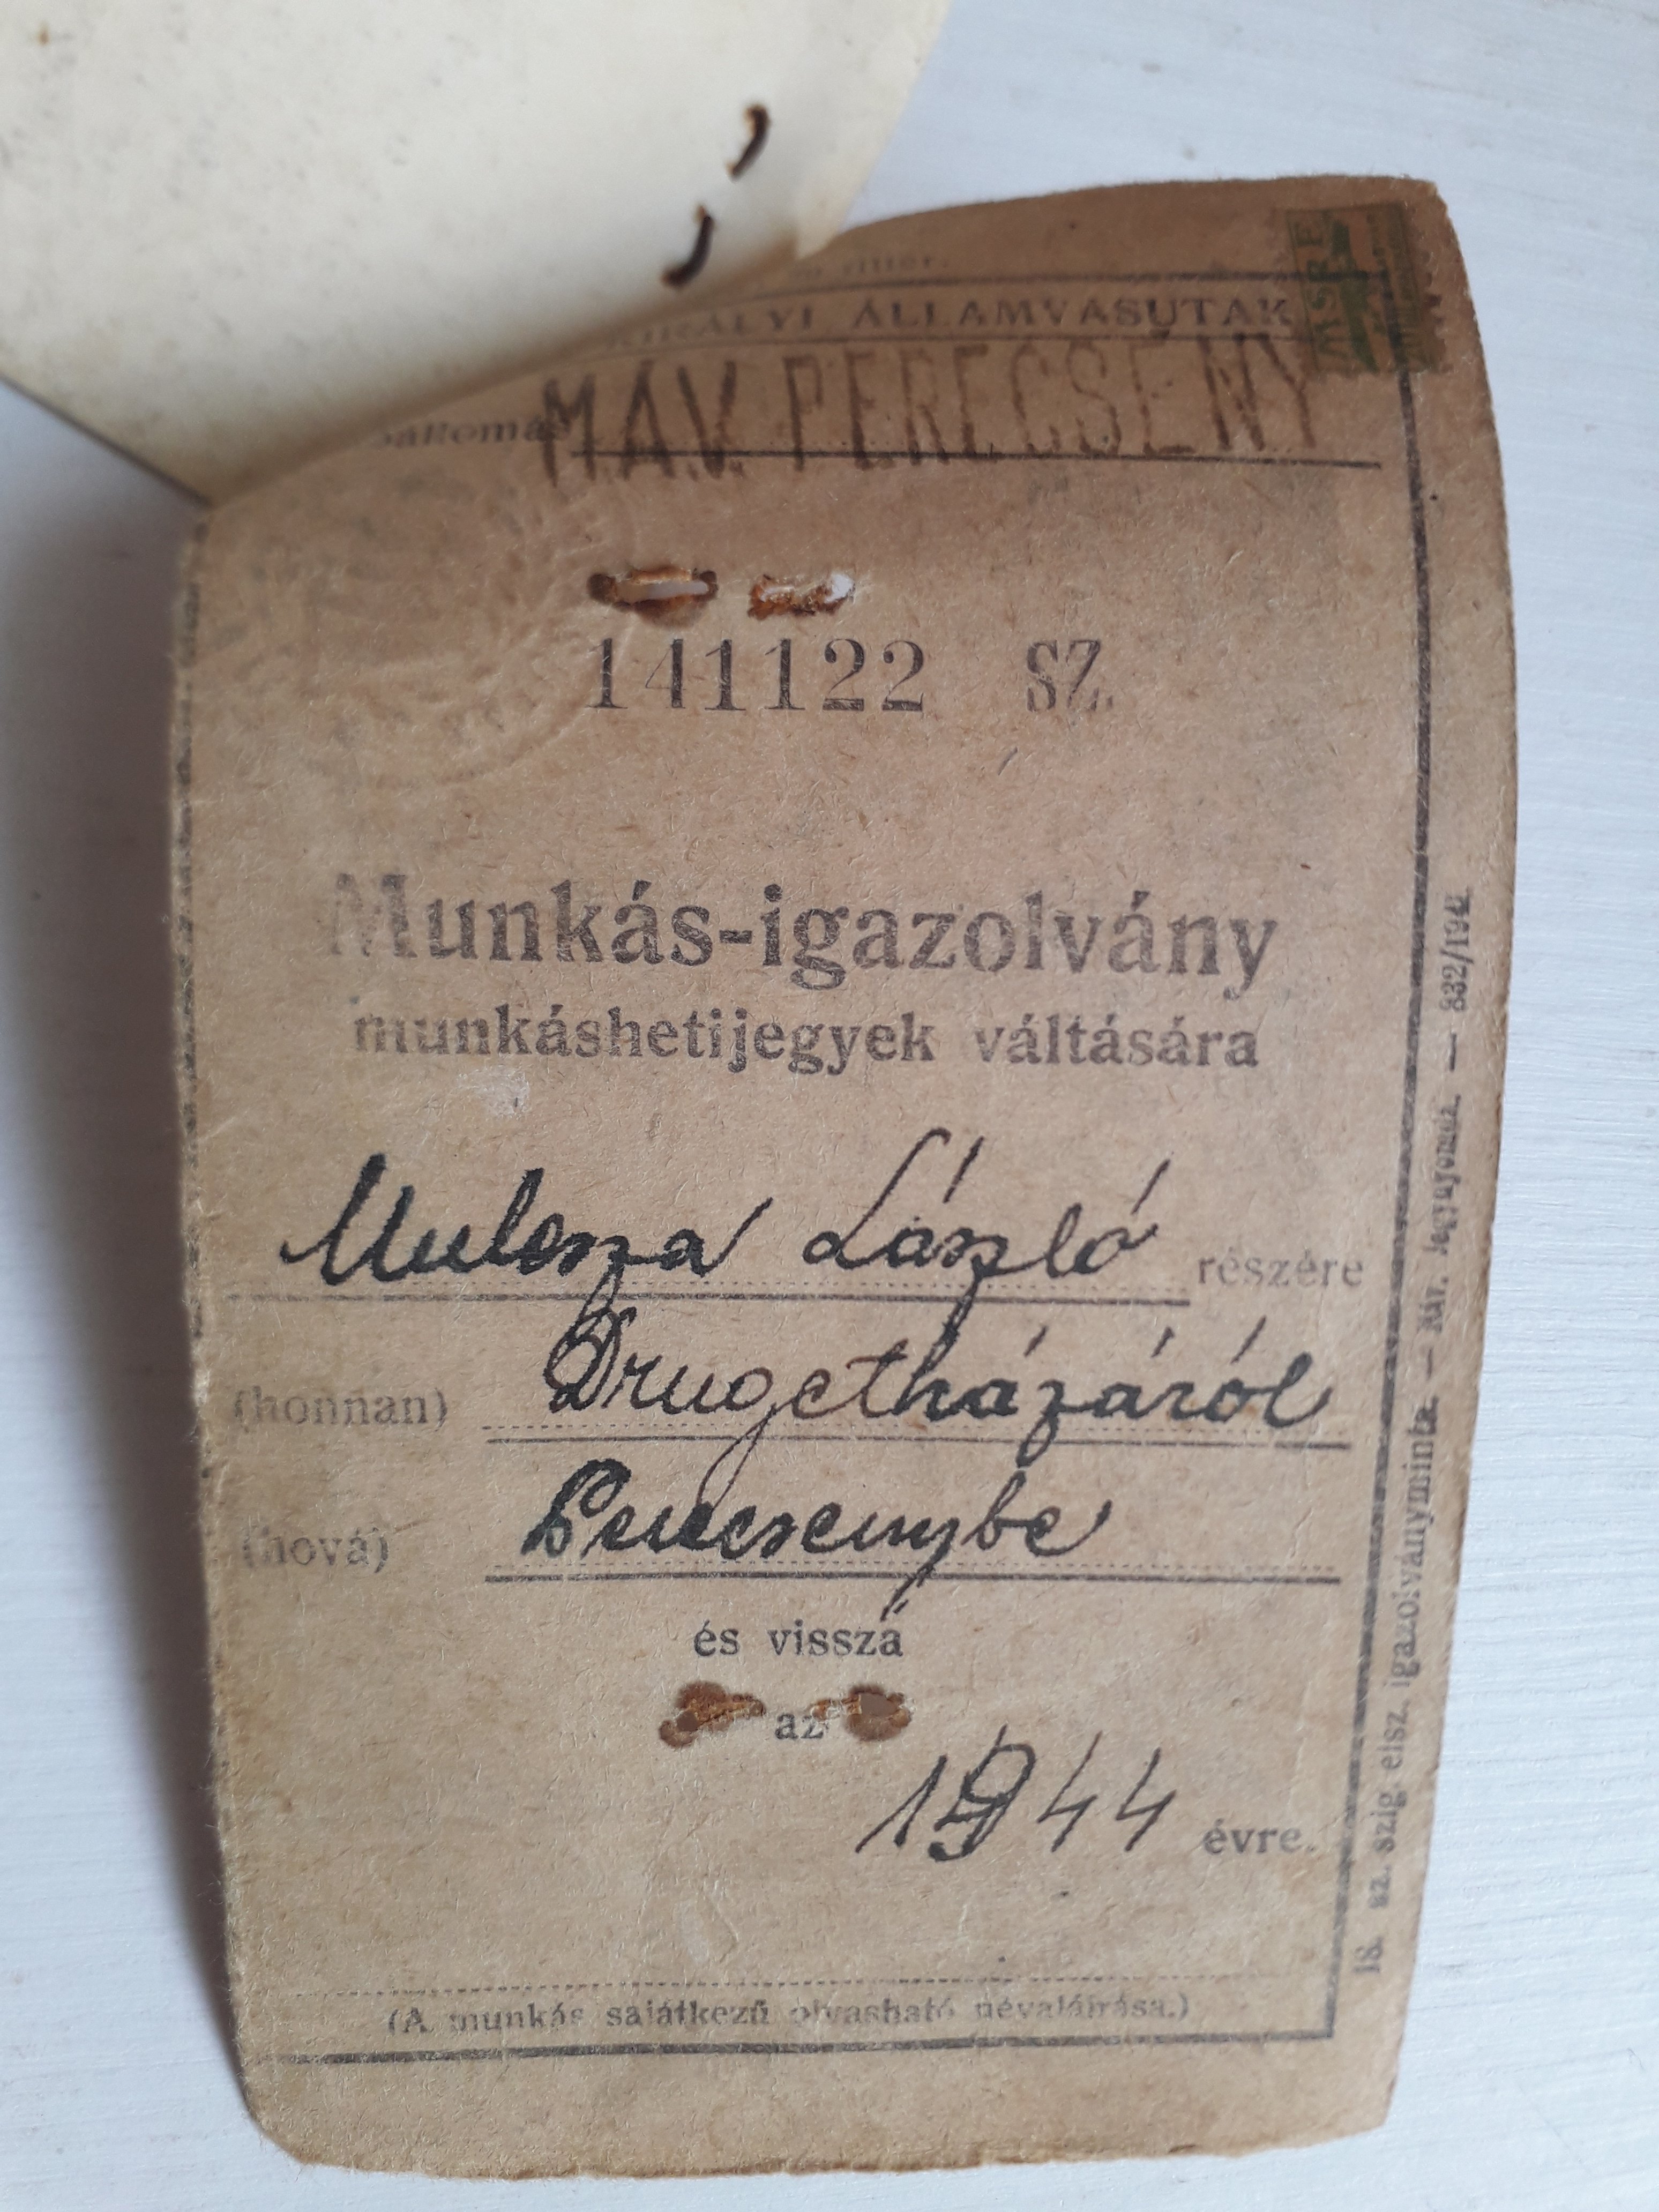 KIRÁLYI ÁLLAMVASUTAK
M.Á.V. PERECSENY
141122 SZ.
Munkás-igazolvány
munkáshetijegyek váltására
Mulesza László részére
(honnan) Drugetházáról
(hová) Perecsenybe
és vissza
az
1944 évre.
(A munkás sajátkezű olvasható névaláírása.)
18. sz. szig elsz. igazolványminta. — Máv. Jegynyomda. — 832/194